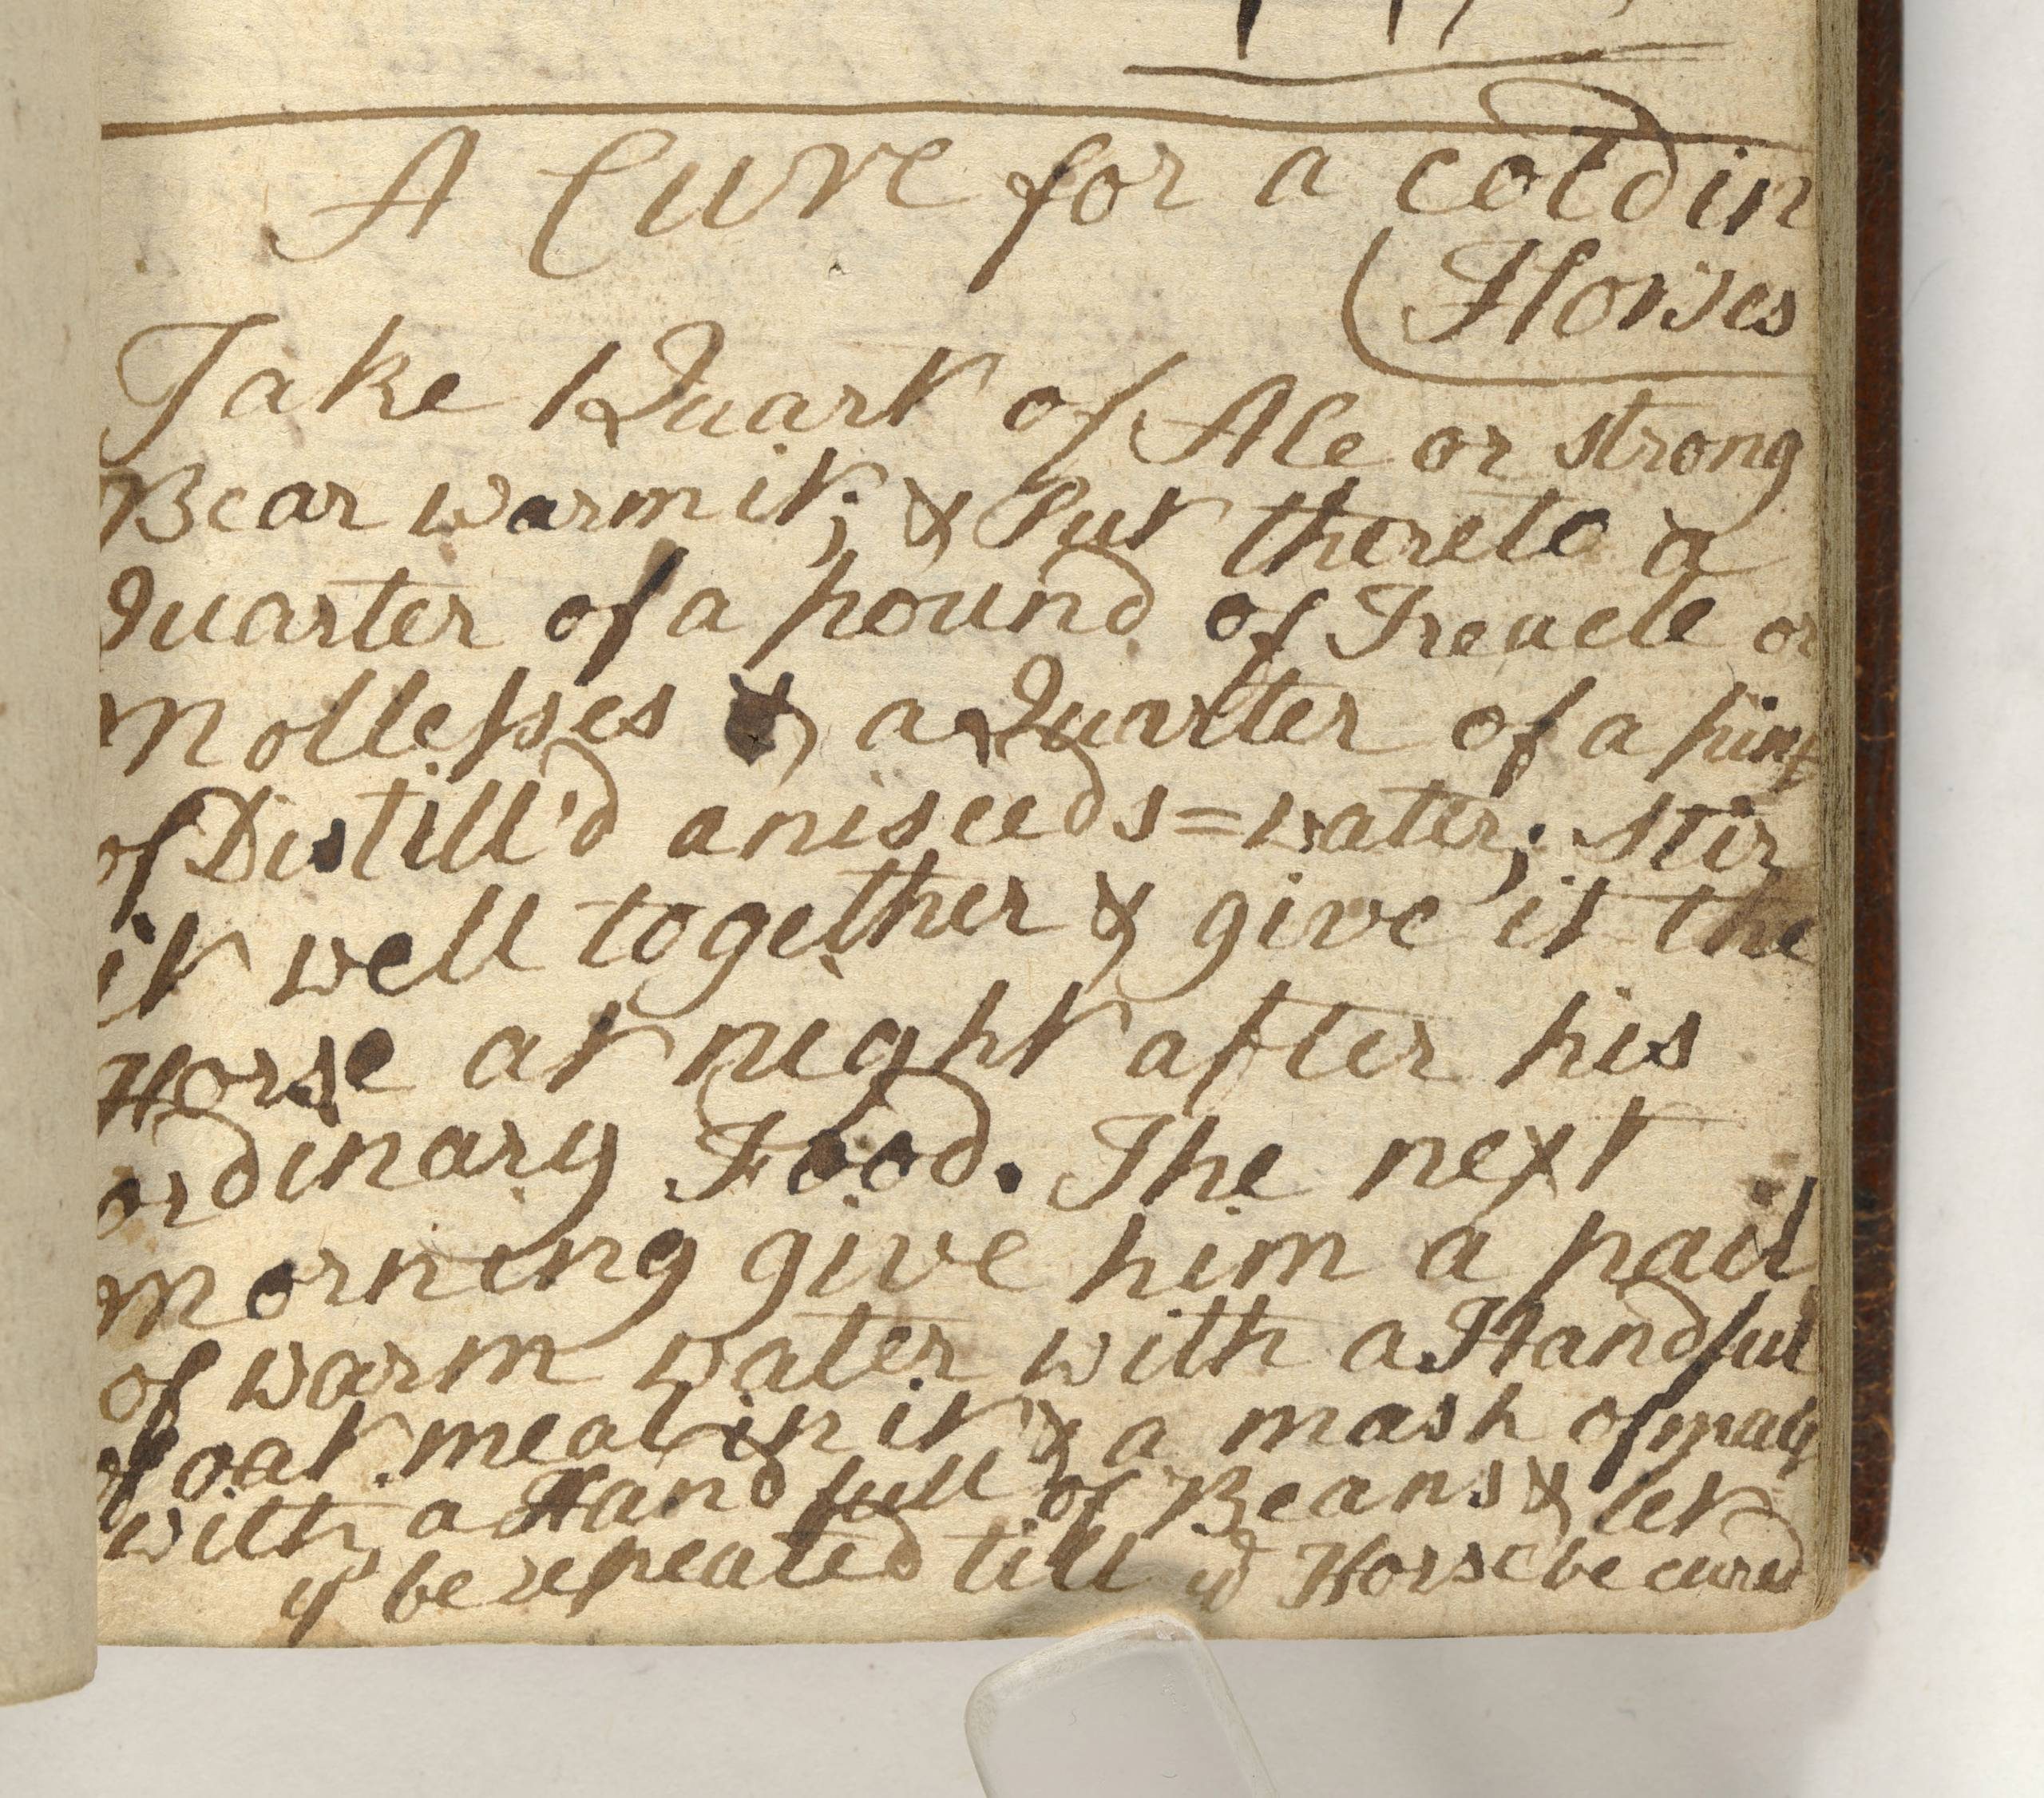 A Cure for a cold in
Horses
Take 1 Quart of Ale or strong
Bear warm it; & Put thereto a
Quarter of a pound of Treacle or
Mollesses & a Quarter of a pint
of Distill'd aniseeds=water; stir
it well together & give it the
Horse at night after his
ordinary Food. The next
morning give him a pail
of warm water with a Handful
of oat meal in it & a mash of malt
with a Hand full of Beans & let
ys be repeated till ye Horse be cured